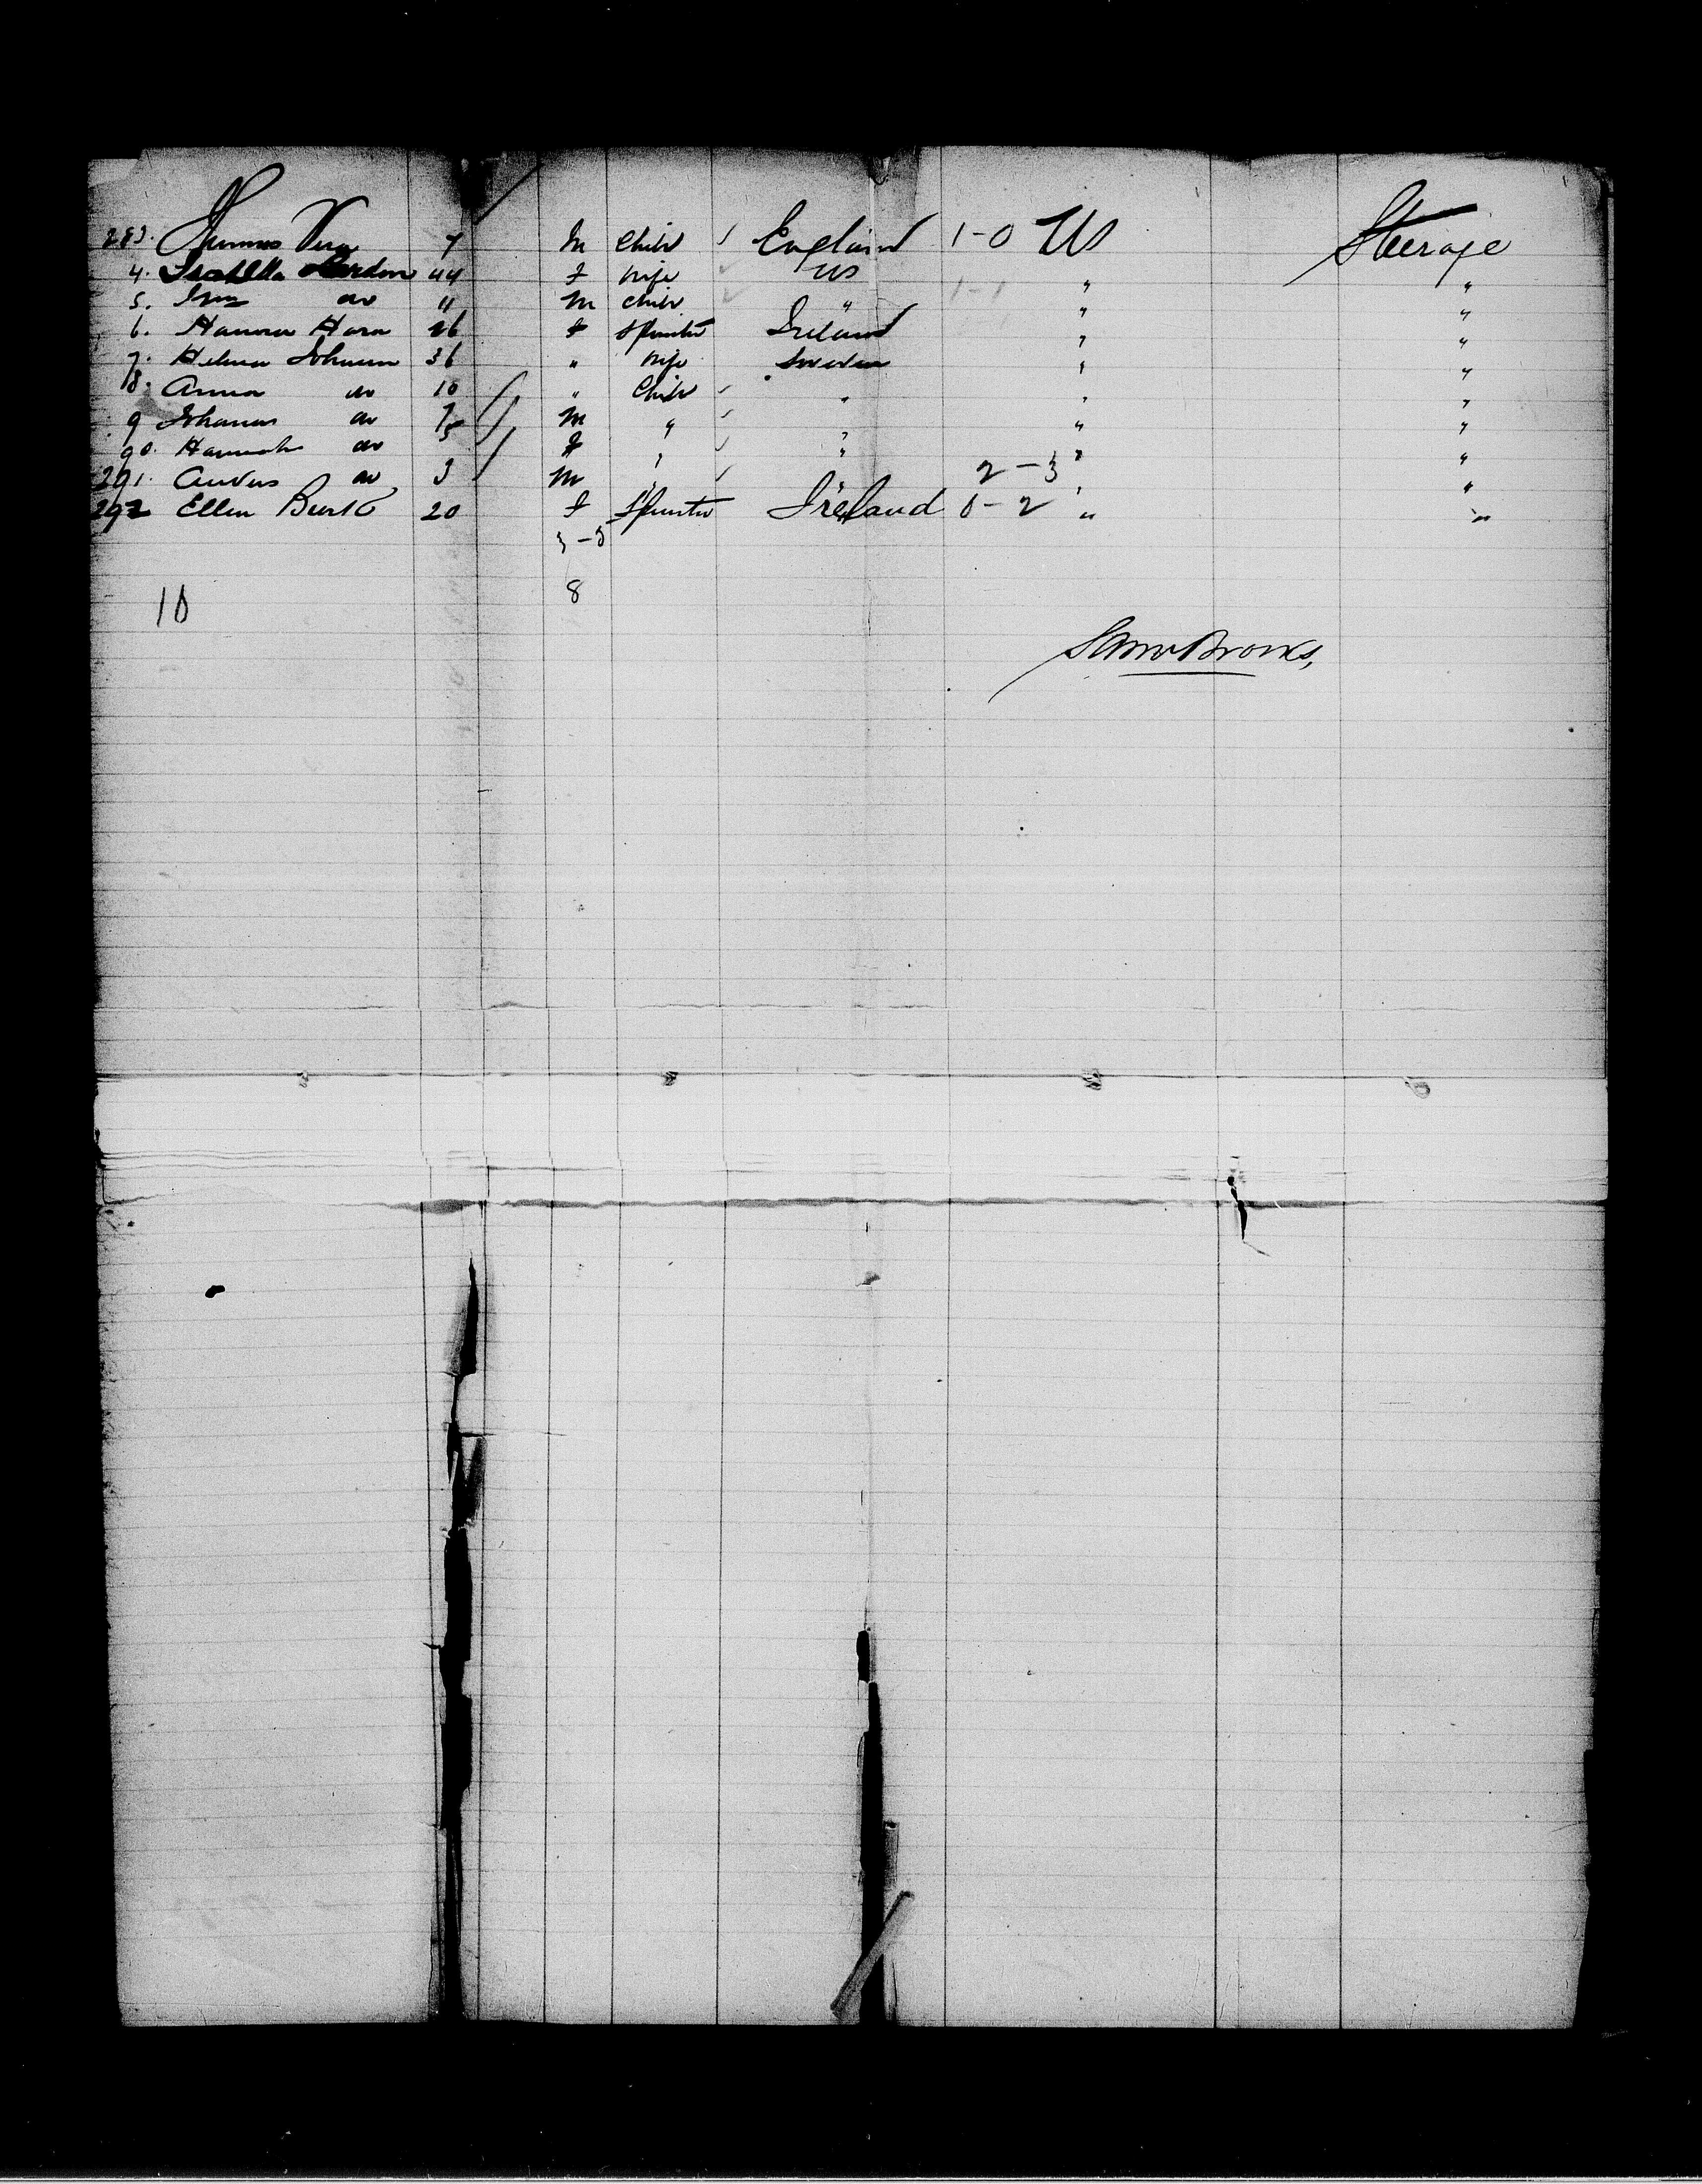 283. Thomas 7 M Child England 1-0 US Steerage
4. Isabella Gordon 44 F Wife US " "
5. do 11 M Child " 1-1 " "
6. Hanora Hara 26 F Spinster Ireland " "
7. Helma Johnson 36 " Wife Sweden " "
8. Anna do 10 " Child " " "
9 Johannes do 7 M " " " "
90. Hannah do 5 F " " " "
291. Anders do 3 M " " 2-3 " "
292 Ellen Burke 20 F Spinster Ireland 0-2 " "
3-5
8
10